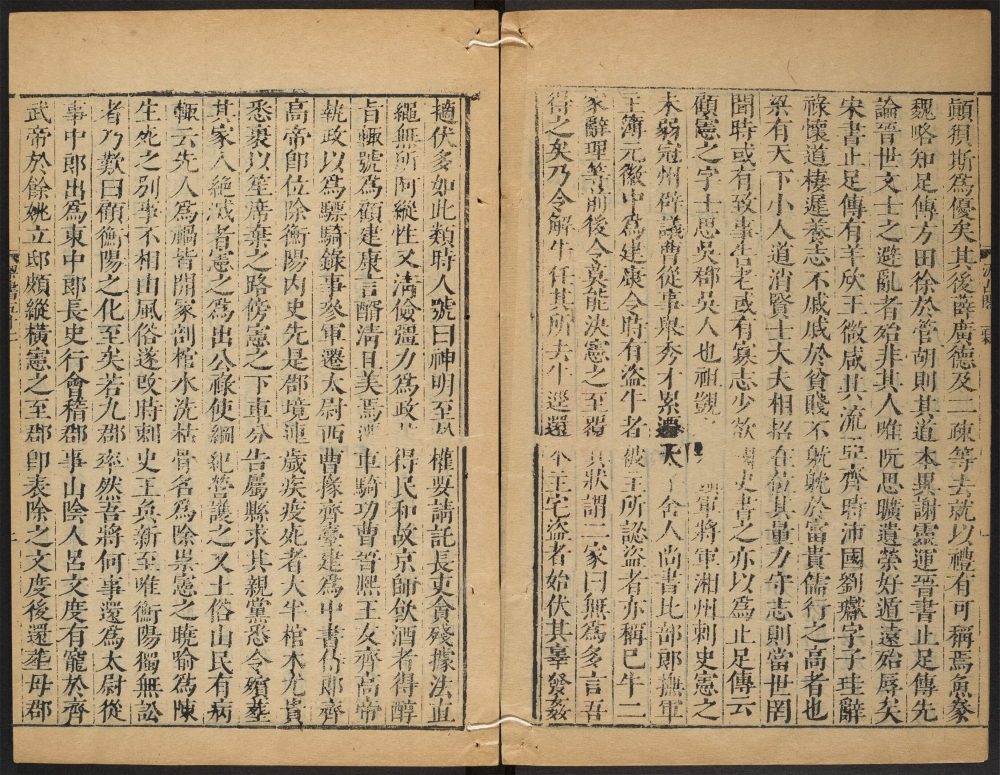 顚狽斯為優矣其後薛廣德及二疎等去就以禮有可稱焉魚豢
魏略知足傳方田徐於管胡則其道本異謝靈運晉書止足傳先
論晉世文士之避亂者殆非其人唯阮思曠遺榮好遁遠殆辱矣
宋書止足傳有羊欣王微咸其流亞齊時沛國劉瓛字子珪辭
祿懷道棲遲養志不戚戚於貧賤不躭躭於富貴儒行之高者也
梁有天下小人道消賢士大夫相招在位其量力守志則當世罔
聞時或有致事告老或有寡志少欲國史書之亦以為止足傳云
顧憲之字士思吳郡吳人也祖覬軍將軍湘州刺史憲之
未弱冠州辟議曹從事舉秀才累遷太舍人尚書比部郎撫軍
主簿元徽中為建康令時有盜牛者被主所認盜者亦稱己牛二
家辭理等前後令莫能決憲之至覆其狀謂二家曰無為多言吾
得之矣乃令解牛任其所去牛逕還本主宅盜者始伏其辜發姦
擿伏多如此類時人號曰神明至於權要請託長吏貪殘據法直
繩無所阿縱性又清儉彊力為政甚得民和故京師飲酒者得醇
旨輒號為顧建康言醑清且美焉遷車騎功曹晉熙王友齊高帝
執政以為驃騎錄事參軍遷太尉西曹掾齊臺建為中書侍郎齊
高帝卽位除衡陽內史先是郡境連歲疾疫死者大半棺木尤貴
悉裹以笙席棄之路傍憲之下車分告屬縣求其親黨悉令殯葬
其家人絕滅者憲之為出公祿使綱紀營護之又土俗山民有病
輒云先人為禍皆開冢剖棺水洗枯骨名為除祟憲之曉喻為陳
生死之別事不相由風俗遂改時刺史王奐新至唯衡陽獨無訟
者乃歎曰顧衡陽之化至矣若九郡率然吾將何事還為太尉從
事中郎出為東中郎長史行會稽郡事山陰人呂文度有寵於齊
武帝於餘姚立邸頗縱橫憲之至郡卽表除之文度後還葬母郡